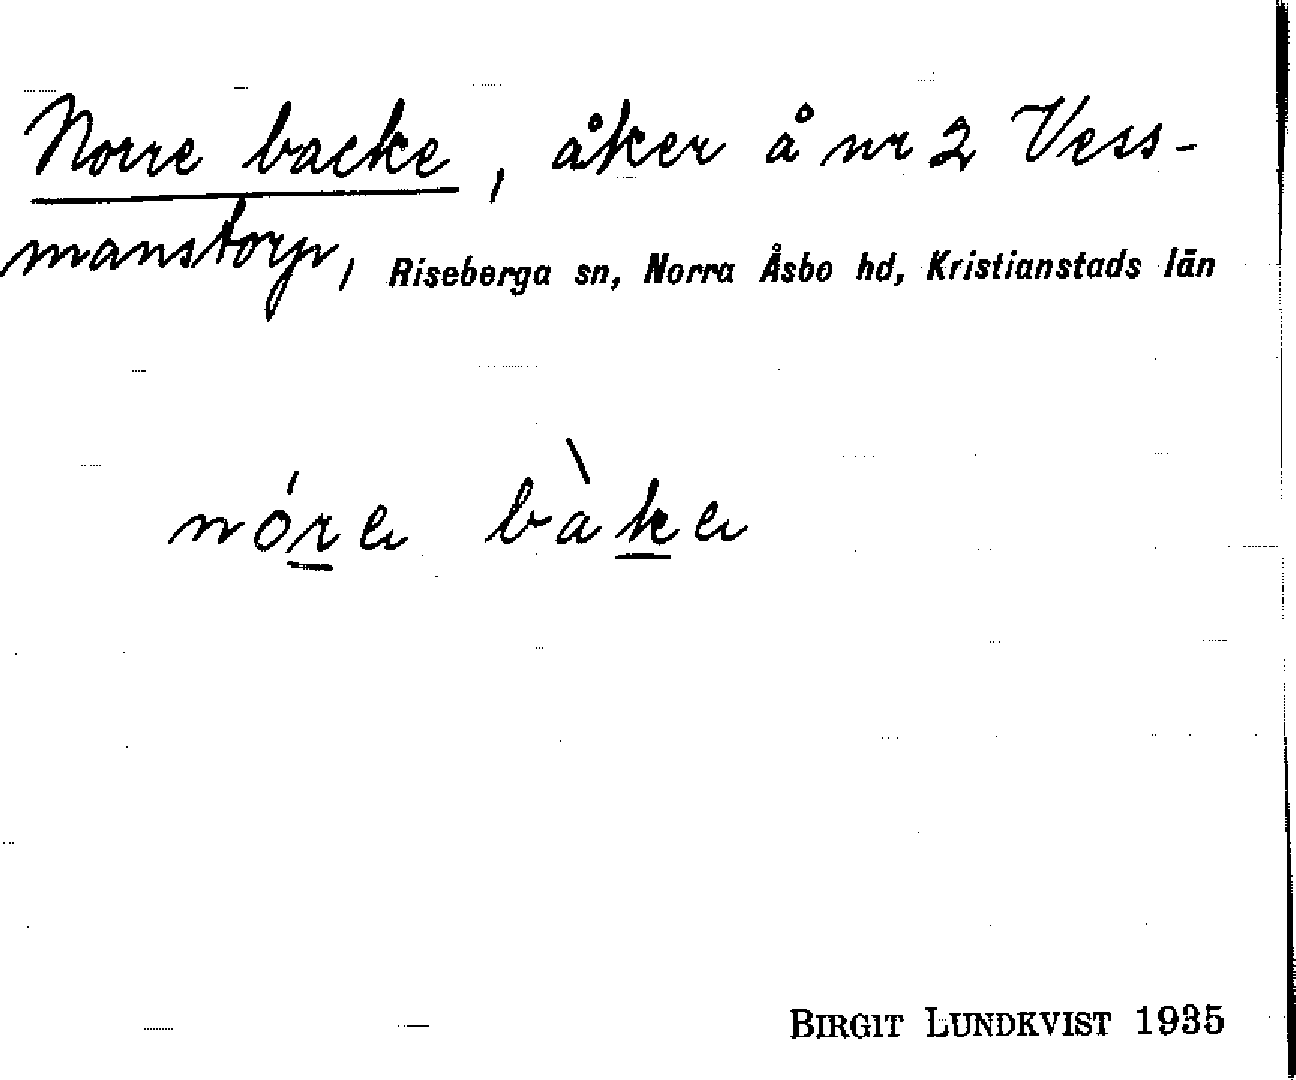 Norre backe, åker å nr 2 Vess-
manstorp, Riseberga sn, Norra Åsbo hd, Kristianstads län
nóre bàke
BIRGIT LUNDKVIST 1935